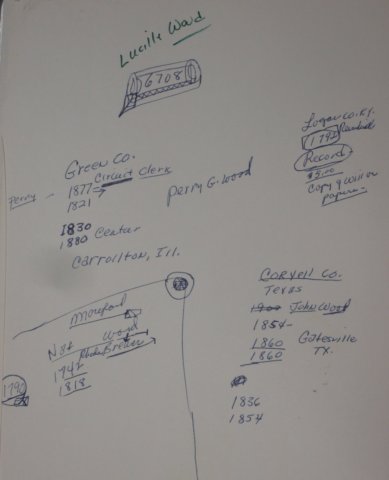 Lucille Ward
6708
Logan Co. Ky.
1792
Record
$5.00
Copy of Will or
papers
Green Co.
Circuit Clerk
Perry - 1877
1821
Perry G. Wood
1830
1880 Center
Carrollton, Ill.
Wood
1818
1792
Coryell Co.
Texas
1900 John Wood
1854-
1860 Gatesville
1860 TX.
1836
1854